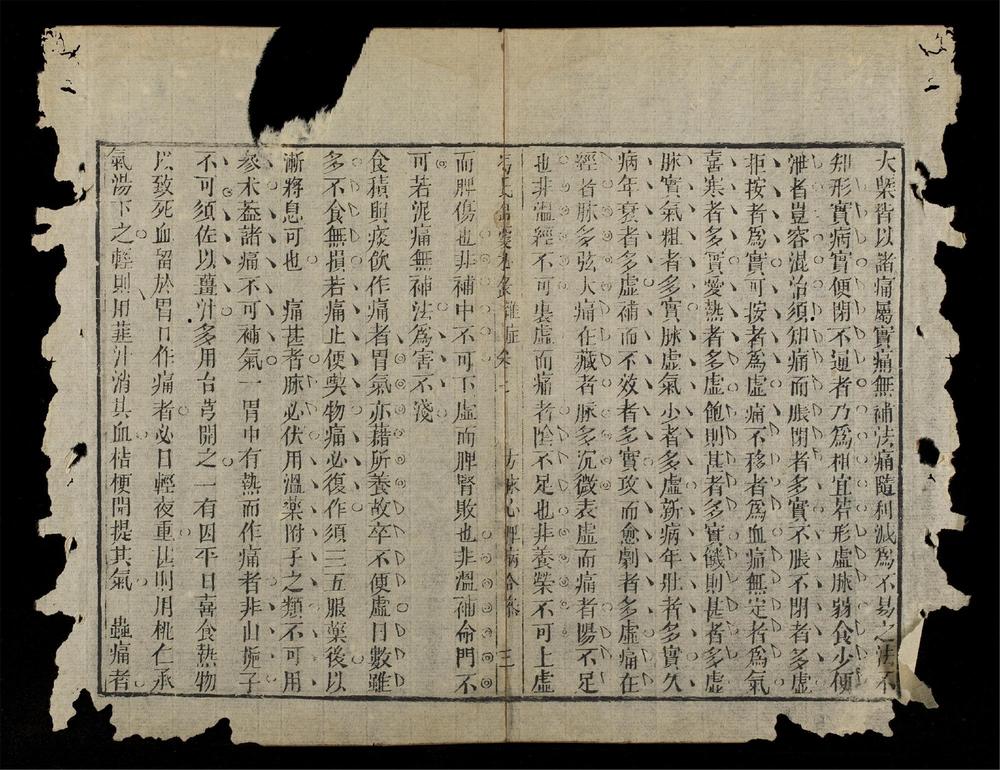 大槩皆以諸痛屬實痛無補法痛隨利減爲不易之法不
知形實病實便閉不通者乃爲相宜若形虛脉弱食少便
泄者豈容混治須知痛而脹閉者多實不脹不閉者多虛
拒按者爲實可按者爲虛痛不移者爲血痛無定者爲氣
喜寒者多實愛熱者多虛飽則甚者多實饑則甚者多虛
脉實氣粗者多實脉虛氣少者多虛新病年壯者多實久
病年衰者多虛補而不效者多實攻而愈劇者多虛痛在
經者脉多弦大痛在藏者脉多沉微表虛而痛者陽不足
也非溫經不可裏虛而痛者陰不足也非養榮不可上虛
馮氏錦囊 雜症 方脉心脾病合叅 三
而脾傷也非補中不可下虛而脾腎敗也非溫補命門不
可若泥痛無補法爲害不淺
食積眀痰飲作痛者胃氣亦藉所養故卒不便虛日數雖
多不食無損若痛止便喫物痛必復作須三五服藥後以
漸將息可也 痛甚者脉必伏用溫藥附子之類不可用
參朮葢諸痛不可補氣一胃中有熱而作痛者非山梔子
不可須佐以薑汁多用台芎開之一有因平日喜食熱物
以致死血留於胃口作痛者必日輕夜重甚則用桃仁承
氣湯下之輕則用韮汁消其血桔梗開提其氣 蟲痛者